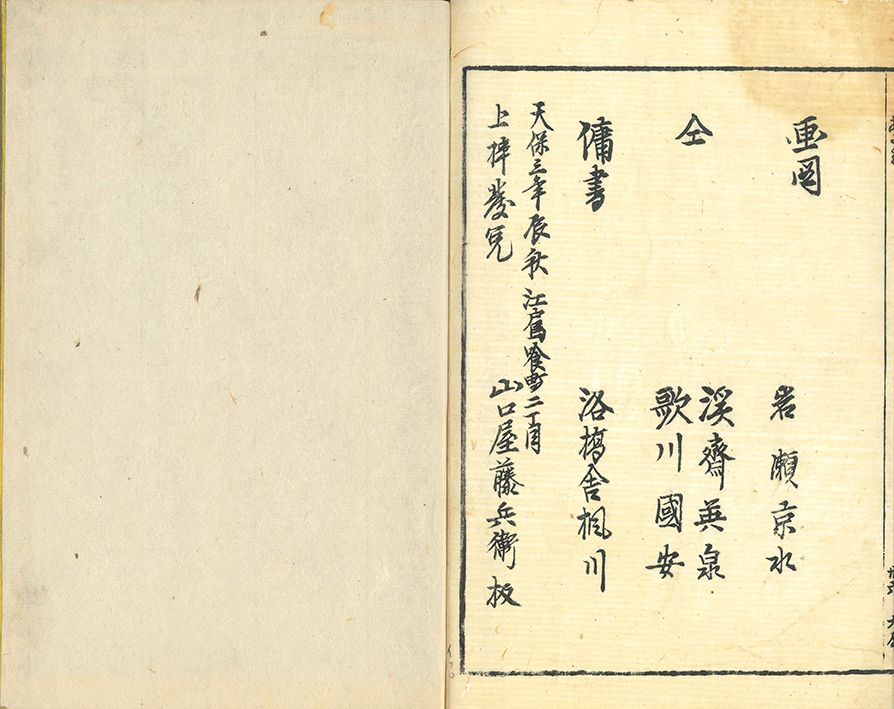 画図 岩瀬京水
仝 溪齋英泉
歌川國安
傭書 洛橋舎楓川
天保三年辰秋 江戸馬喰町二丁目
上梓發兌 山口屋藤兵衛板